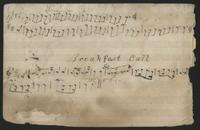 Breakfast Call